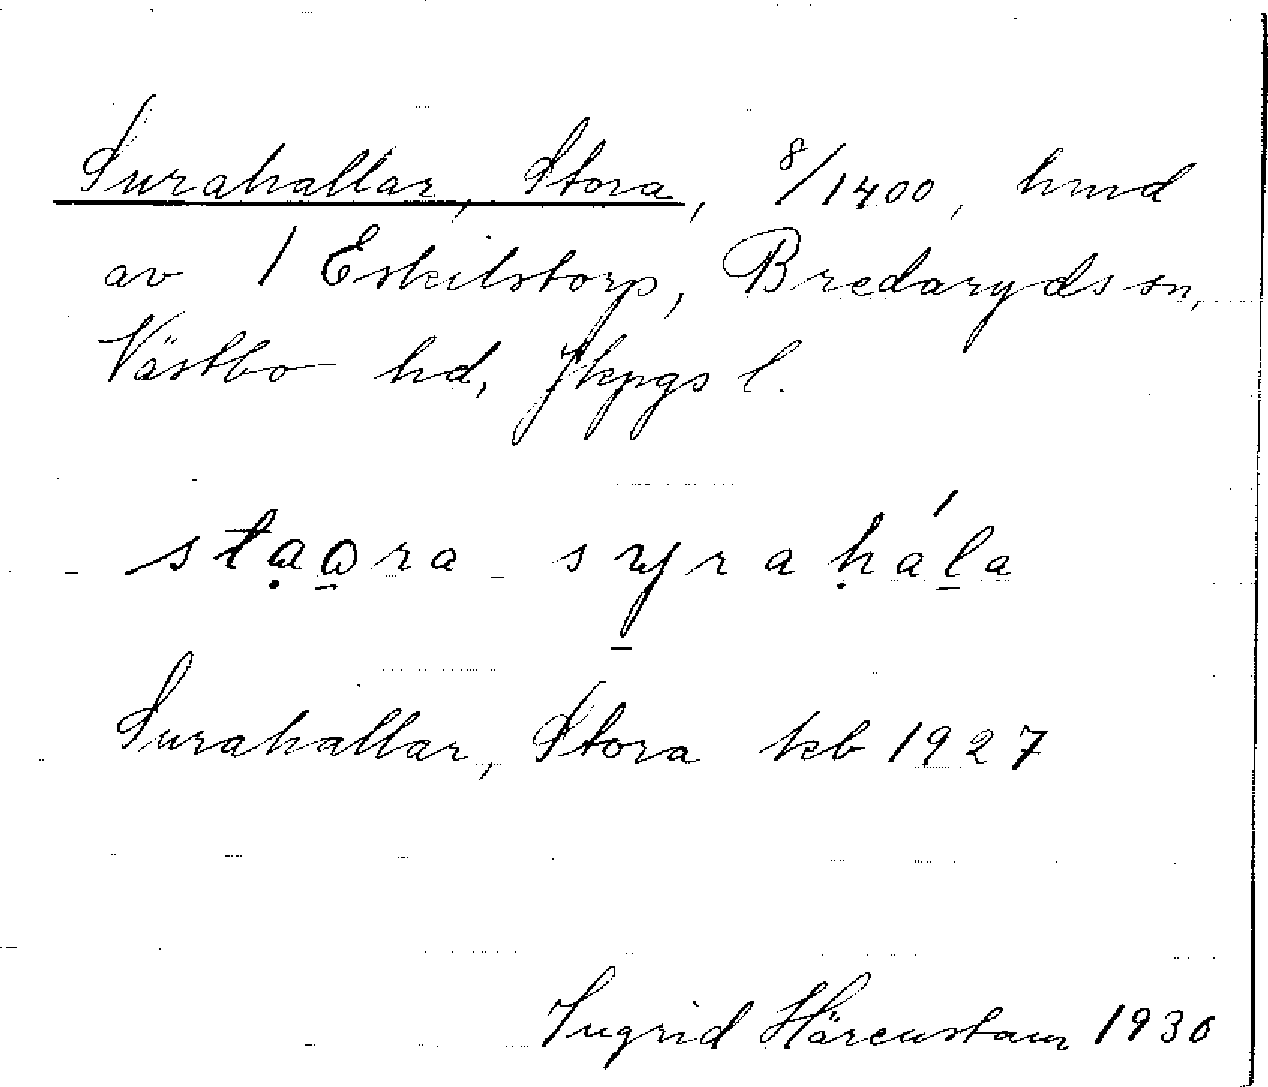 Surahallar, Stora, 8/1400, hmd
av 1 Eskilstorp, Bredaryds sn,
Västbo hd, Jkpgs l.
stạo̲ra sy̲raḥál̲a
Surahallar, Stora kb 1927
Ingrid Härenstam 1930